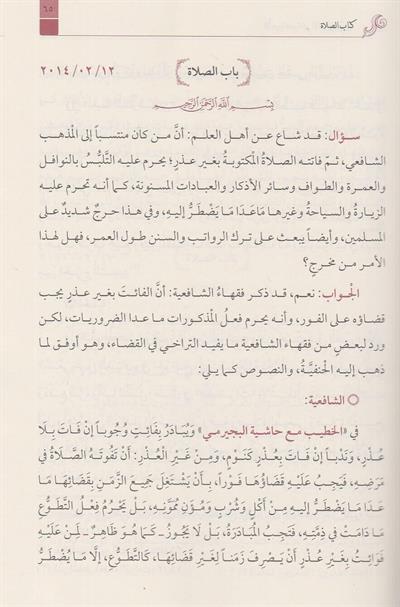 كتاب الصلاة
٦٥
باب الصلاة
٢٠١٤/٠٢/١٢
بسم الله الرحمن الرحيم
سؤال: قد شاع عن أهل العلم: أنَّ من كان منتسباً إلى المذهب
الشافعي، ثمّ فاتته الصلاةُ المكتوبةُ بغير عذرٍ؛ يحرم عليه التلبُّسُ بالنوافل
والعمرة والطواف وسائر الأذكار والعبادات المسنونة، كما أنه تحرم عليه
الزيارةُ والسياحةُ وغيرها مَاعَدَا مَا يَضْطَرُّ إليهِ، وفي هذا حرجٌ شديدٌ على
المسلمين، وأيضاً يبعث على ترك الرواتب والسنن طول العمر، فهل لهذا
الأمر من مخرجٍ؟
الجواب: نعم، قد ذكر فقهاءُ الشافعية: أنَّ الفائتَ بغير عذرٍ يجب
قضاؤه على الفور، وأنه يحرم فعلُ المذكورات ما عدا الضروريات، لكن
ورد لبعضٍ من فقهاء الشافعية ما يفيد التراخي في القضاء، وهو أوفق لما
ذهب إليه الحنفيّة، والنصوص كما يلي:
الشافعية:
في «الخطيب مع حاشية البجيرمي» وَيُبَادَرُ بِفَائِتٍ وُجُوباً إنْ فَاتَ بِلَا
عُذْرٍ، وَنَدْباً إنْ فَاتَ بِعُذْرٍ كَنَوْمٍ، وَمِنْ غَيْرِ الْعُذْرِ: أَنْ تَفُوتَهُ الصَّلَاةُ فِي
مَرَضِهِ، فَيَجِبُ عَلَيْهِ قَضَاؤُهَا فَوْراً، بِأَنْ يَشْتَغِلَ جَمِيعَ الزَّمَنِ بِقَضَائِهَا مَا
عَدَا مَا يَضْطَرُّ إلَيْهِ مِنْ أَكْلٍ وَشُرْبٍ وَمُؤَنِ مُمَوَّنِهِ، بَلْ يَحْرُمُ فِعْلُ التَّطَوُّعِ
مَا دَامَتْ فِي ذِمَّتِهِ، فَتَجِبُ الْمُبَادَرَةُ، بَلْ لَا يَجُوزُ ـ كَمَا هُوَ ظَاهِرٌ ـ لِمَنْ عَلَيْهِ
فَوَائِتُ بِغَيْرِ عُذْرٍ أَنْ يَصْرِفَ زَمَناً لِغَيْرِ قَضَائِهَا، كَالتَّطَوُّعِ، إلَّا مَا يُضْطَرُّ